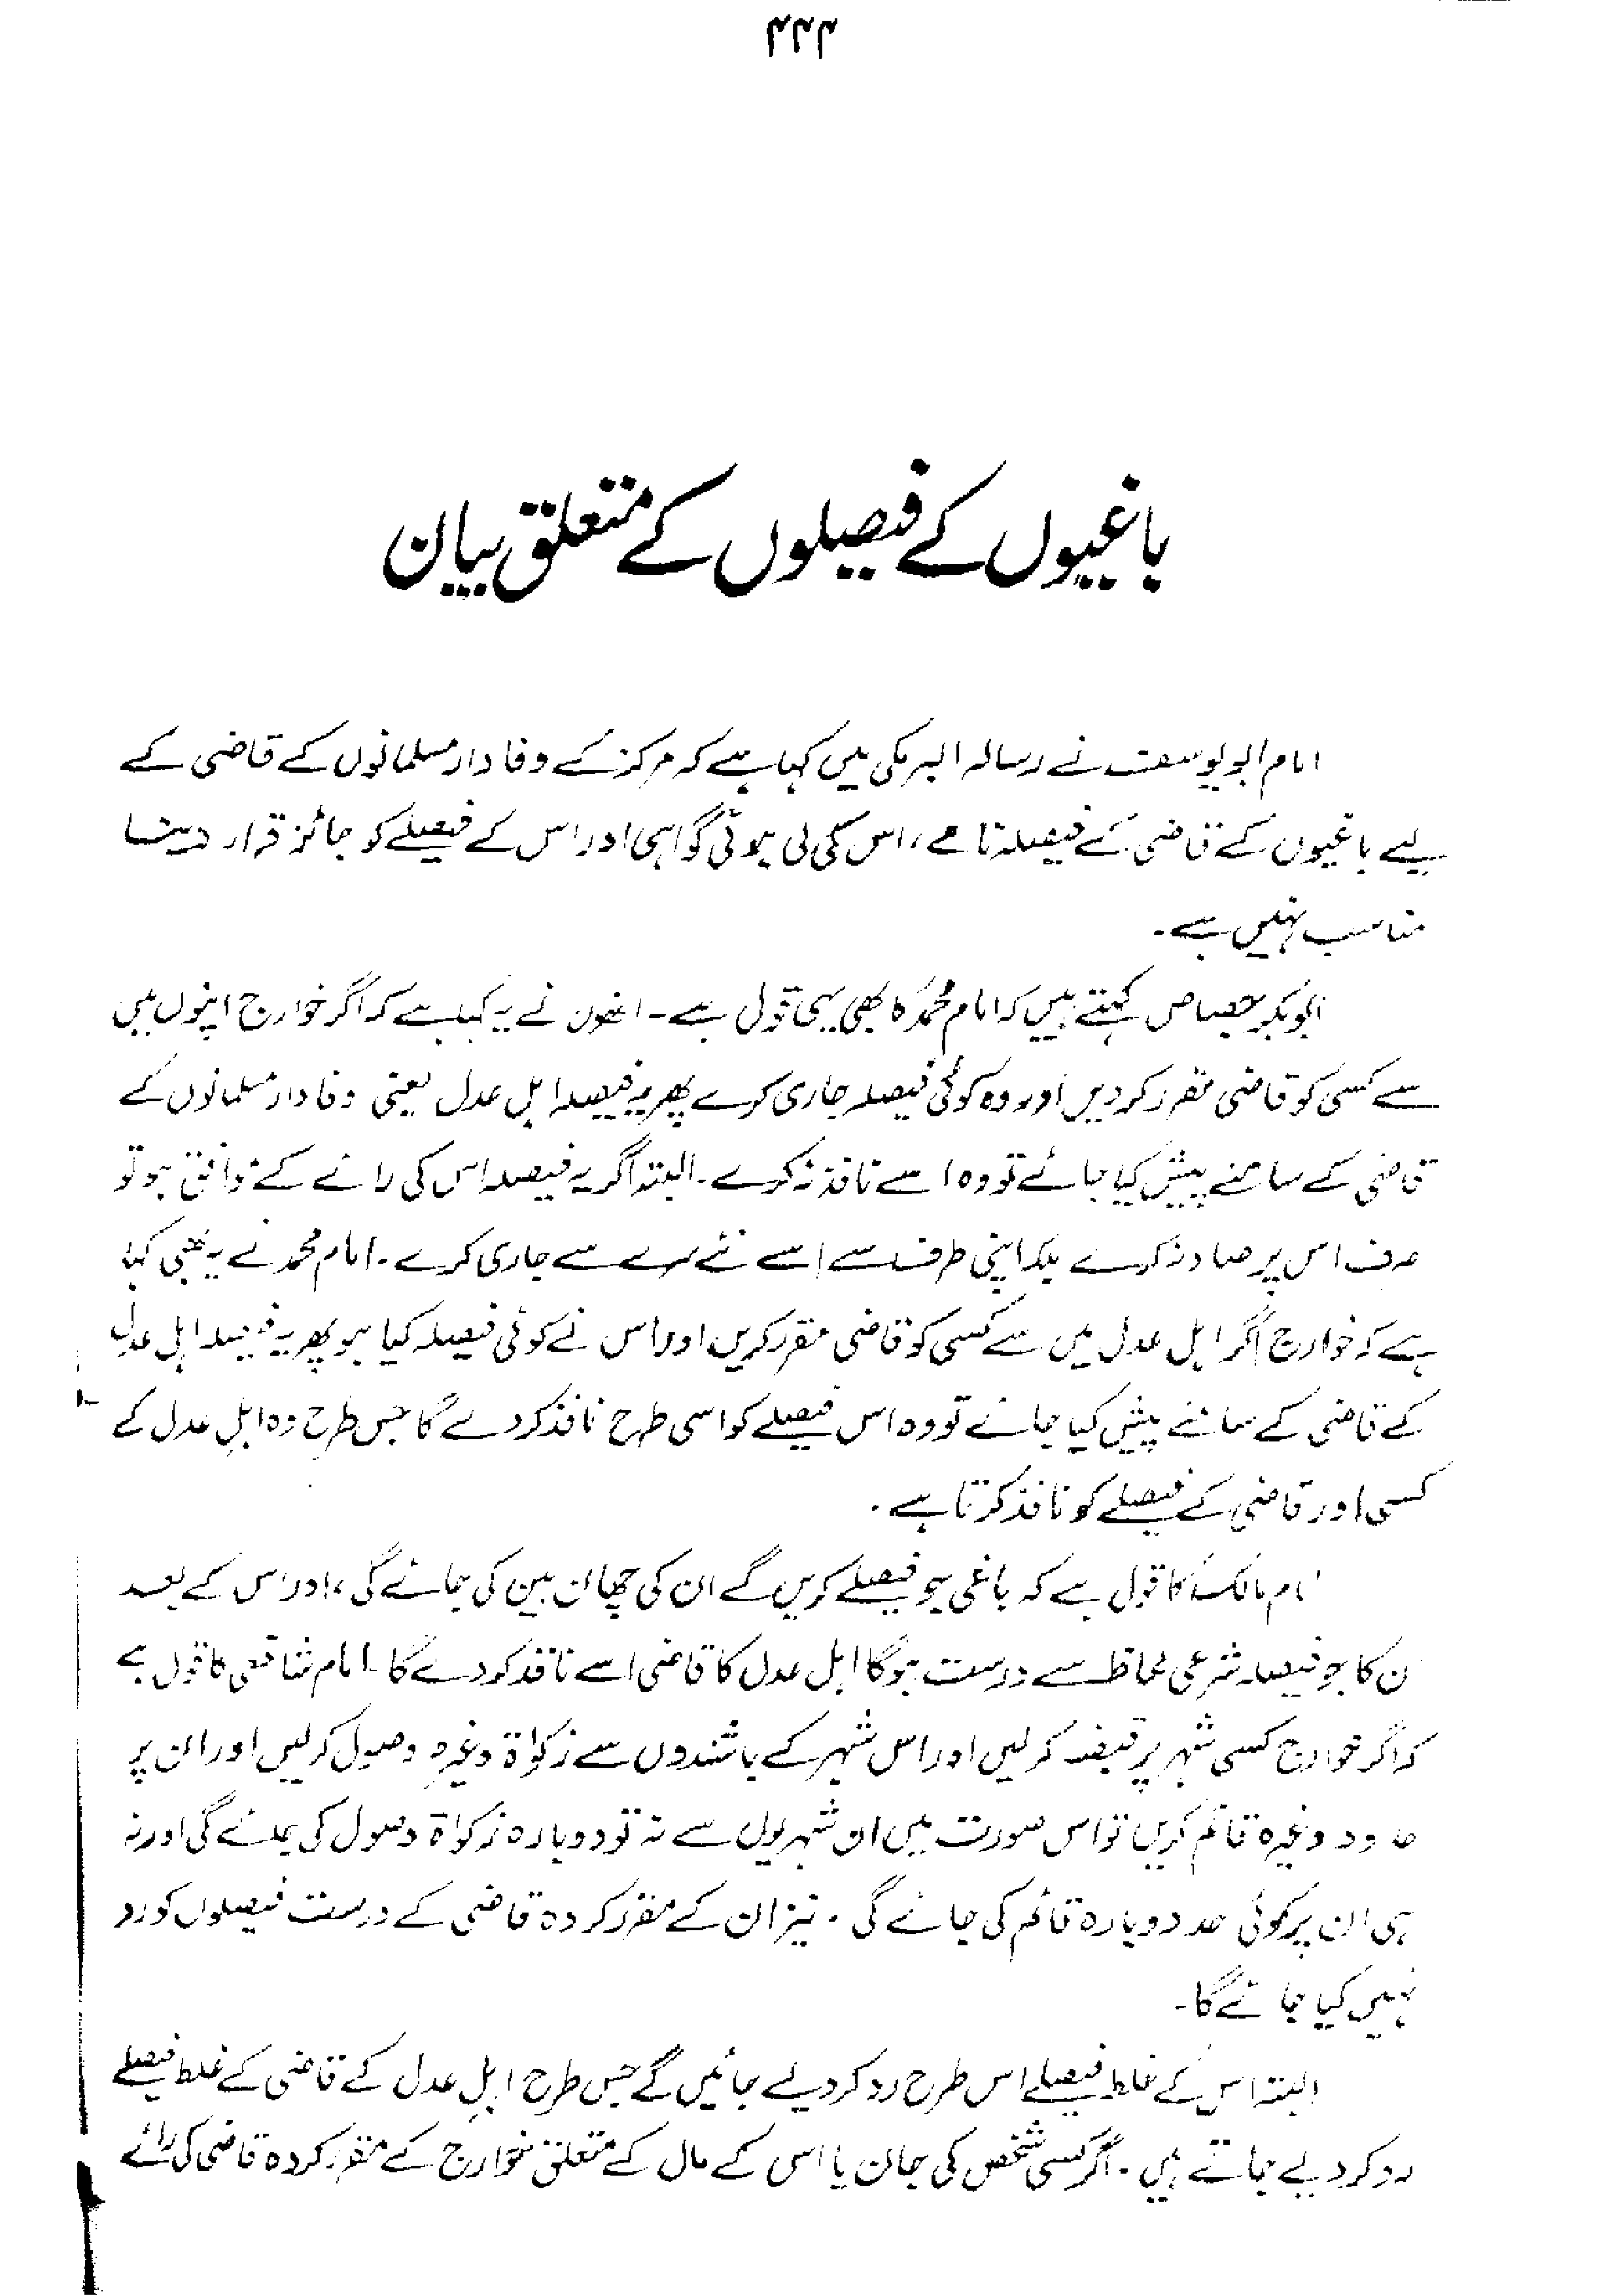 ۴۴۴
باغیوں کے فیصلوں کے متعلق بیان
امام ابو یوسف نے رسالہ البرمکی میں کہا ہے کہ مرکز کے وفادار مسلمانوں کے قاضی کے
لیے باغیوں کے قاضی کے فیصلہ نامے، اس کی لی ہوئی گواہی اور اس کے فیصلے کو جائز قرار دینا
مناسب نہیں ہے۔
ابوبکر جصاص کہتے ہیں کہ امام محمدؒ کا بھی یہی قول ہے۔ انھوں نے یہ کہا ہے کہ اگر خوارج اپنوں میں
سے کسی کو قاضی مقرر کردیں اور وہ کوئی فیصلہ جاری کرے پھر یہ فیصلہ اہل عدل یعنی وفادار مسلمانوں کے
قاضی کے سامنے پیش کیا جائے تو وہ اسے نافذ نہ کرے۔ البتہ اگر یہ فیصلہ اس کی رائے کے موافق ہو تو
صرف اس پر صاد نہ کرے بلکہ اپنی طرف سے اسے نئے سرے سے جاری کرے۔ امام محمد نے یہ بھی کہا
ہے کہ خوارج اگر اہل عدل میں سے کسی کو قاضی مقرر کریں اور اس نے کوئی فیصلہ کیا ہو پھر یہ فیصلہ اہل عدل
کے قاضی کے سامنے پیش کیا جائے تو وہ اس فیصلے کو اسی طرح نافذ کردے گا جس طرح وہ اہل عدل کے
کسی اور قاضی کے فیصلے کو نافذ کرتا ہے۔
امام مالکؒ کا قول ہے کہ باغی جو فیصلے کریں گے ان کی چھان بین کی جائے گی، اور اس کے بعد
ان کا جو فیصلہ شرعی لحاظ سے درست ہوگا اہل عدل کا قاضی اسے نافذ کردے گا۔ امام شافعی کا قول ہے
کہ اگر خوارج کسی شہر پر قبضہ کرلیں اور اس شہر کے باشندوں سے زکواۃ وغیرہ وصول کرلیں اور ان پر
حدود وغیرہ قائم کریں تو اس صورت میں ان شہریوں سے نہ تو دوبارہ زکواۃ وصول کی جائے گی اور نہ
ہی ان پر کوئی حد دوبارہ قائم کی جائے گی۔ نیز ان کے مقرر کردہ قاضی کے درست فیصلوں کو رد
نہیں کیا جائے گا۔
البتہ اس کے غلط فیصلے اس طرح رد کردیے جائیں گے جس طرح اہل عدل کے قاضی کے غلط فیصلے
رد کردیے جاتے ہیں۔ اگر کسی شخص کی جان یا اس کے مال کے متعلق خوارج کے مقرر کردہ قاضی کی رائے